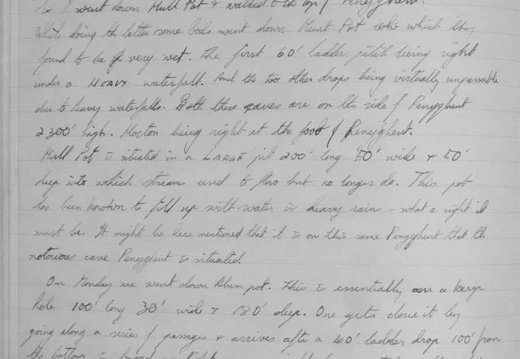 I went down Hull Pot & walked to the top of Penyghent.
While doing the latter some lads went down Hunt Pot which they
found to be very wet. The first 60' ladder pitch being right
under a HEAVY waterfall. And the two other drops being virtually unpassable
due to heavy waterfalls. Both these caves are on the side of Penyghent
2300' high. Horton being right at the foot of Penyghent.
Hull Pot is situated in a LARGE pit 200' long 50' wide & 50'
deep into which stream used to flow but no longer do. This pot
has been known to fill up with water in heavy rains - what a sight it
must be. It might be here mentioned that it is on this same Penyghent that the
notorious cave Penyghent is situated.
On Monday we went down Alum pot. This is essentially a large
hole 100' long 30' wide & 180' deep. One gets down it by
going along a series of passages & arrives after a 40' ladder drop 100' from
the bottom